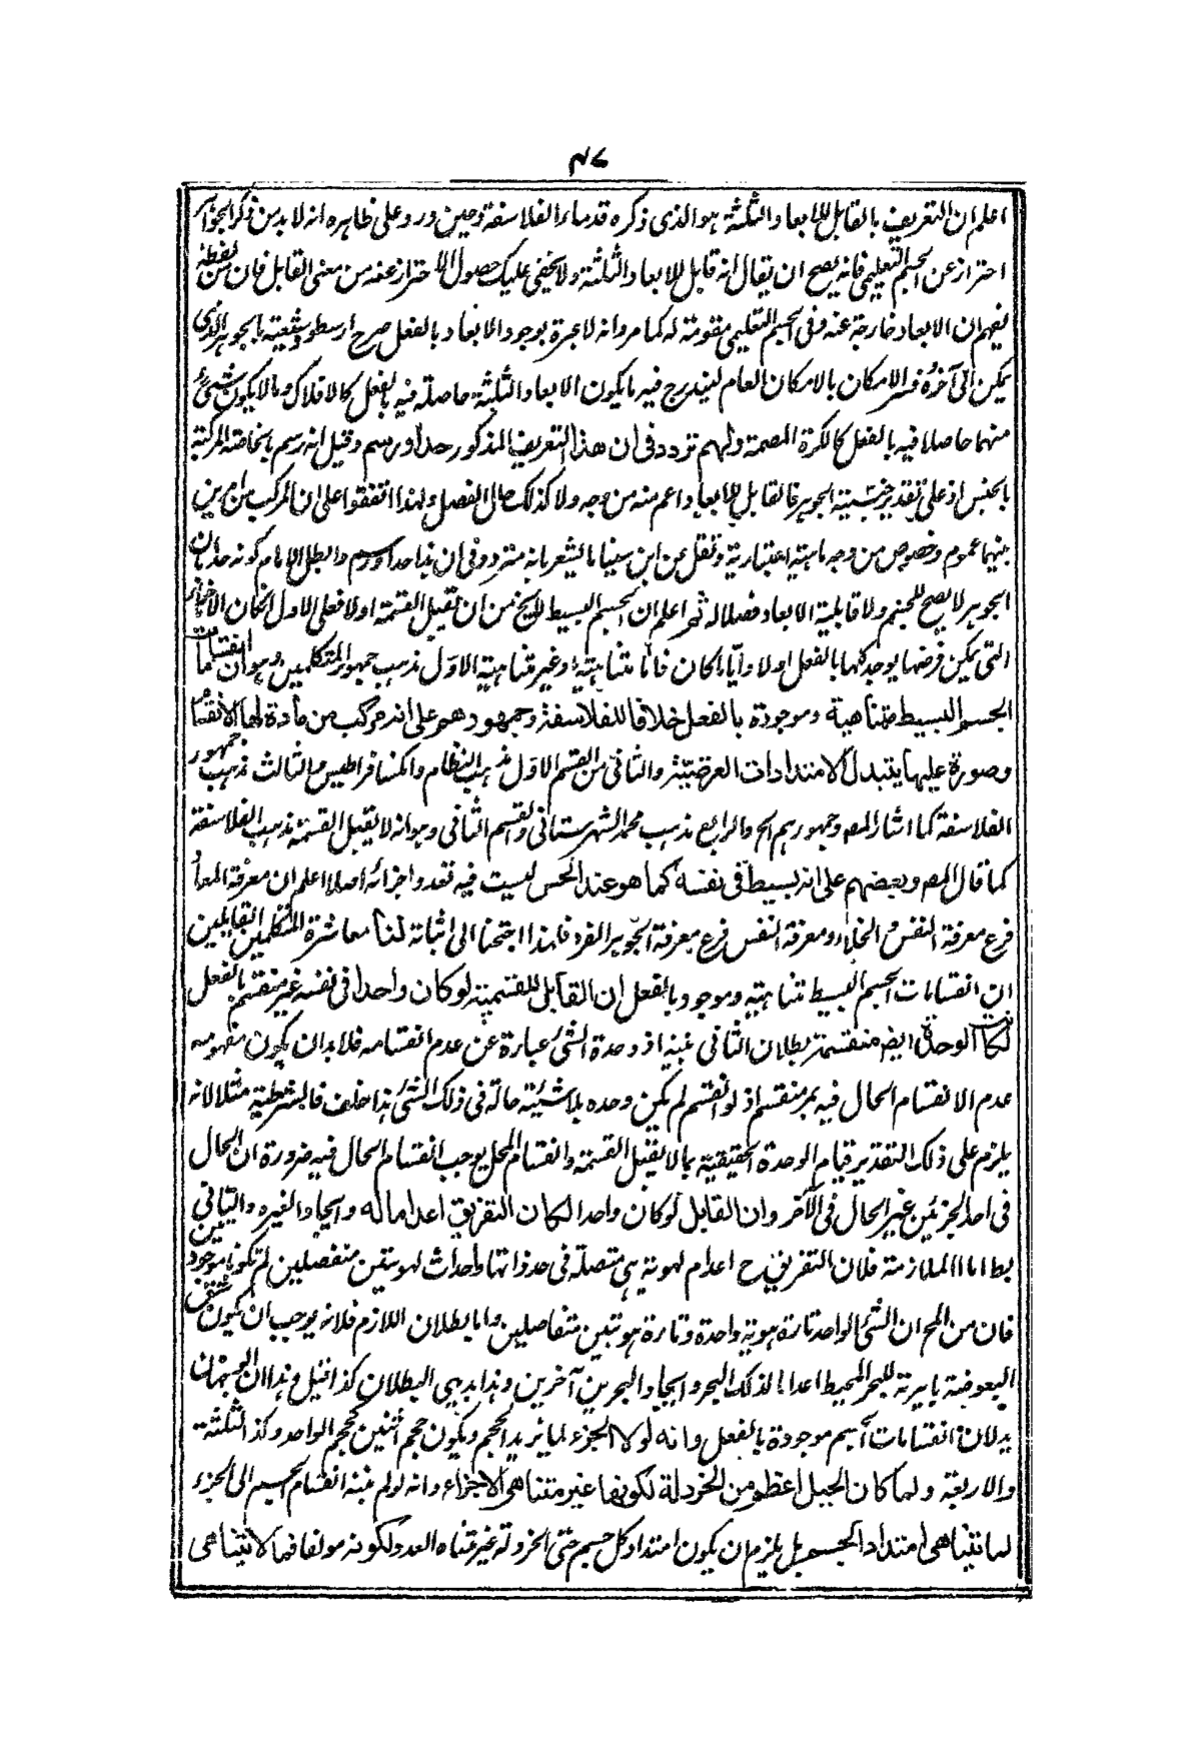 ٤٧
اعلم ان التعريف بالقابل للابعاد الثلثة هو الذى ذكره قدماء الفلاسفة وحين ورد على ظاهره انه لابد من ذكر الجوهر
احتراز عن الجسم التعليمى فانه يصح ان يقال انه قابل للابعاد الثلثة ولا يخفى عليك حصول الاحتراز عنه من معنى القابل فان من لفظة
يفهم ان الابعاد خارجة عنه وفى الجسم التعليمى مقومة له كما مر وانه لا عبرة بوجود الابعاد بالفعل صرح ارسطو وشيعته بالجوهر الذى
يمكن الى آخره وفسر الامكان بالامكان العام ليندرج فيه ما يكون الابعاد الثلثة حاصلة فيه بالفعل كالافلاك وما لا يكون شئ
منهما حاصلا فيه بالفعل كالكرة المصمة ولهم تردد فى ان هذا التعريف المذكور حد او رسم وقيل انه رسم بالخاصة المركبة
بالجنس اذ على تقدير جنسية الجوهر فالقابل للابعاد اعم منه من وجه ولا كذلك حال الفصل ولهذا اتفقوا على ان المركب من امرين
بينهما عموم وخصوص من وجه ماهية اعتبارية ونقل عن ابن سينا ما يشعر بانه متردد فى ان هذا حد او رسم وابطل الامام كونه حدا بان
الجوهر لا يصح للجنس ولا قابلية الابعاد فصلا له ثم اعلم ان الجسم البسيط لا يخ من ان يقبل القسمة او لا فعلى الاول اما كان الاجزاء
التى يمكن فرضها يوجد كلها بالفعل او لا وايا ما كان فاما متناهية او غير متناهية الاول ذهب جمهور المتكلمين وهو ان انقسامات
الجسم البسيط متناهية وموجودة بالفعل خلافا للفلاسفة وجمهورهم على انه مركب من مادة لها الانقسام
وصورة عليها يتبدل الامتدادات العرضية والثانى من القسم الاول ذهب النظام وانكسافراطيس والثالث ذهب جمهور
الفلاسفة كما اشار المصـ وجمهورهم الخ والرابع مذهب محمد الشهرستانى والقسم الثانى وهو انه لا يقبل القسمة مذهب الفلاسفة
كما قال المصـ وبعضهم على انه بسيط فى نفسه كما هو عند الحس ليست فيه تعدد اجزائه اصلا اعلم ان معرفة المعاد
فرع معرفة النفس و الخلاء ومعرفة النفس فرع معرفة الجوهر الفرد فلهذا احتجنا الى اثباته لنا معاشرة المتكلمين القائلين
ان انقسامات الجسم البسيط متناهية وموجود بالفعل ان القابل للقسمة لو كان واحدا فى نفسه غير منقسم بالفعل
لكانت الوحدة ايضا منقسمة وبطلان الثانى بينة اذ وحدة الشئ عبارة عن عدم انقسامه فلا بد ان يكون مفهومه
عدم الانقسام الحال فيه غير منقسم اذ لو انقسم لم يكن وحده بل اشيئية حالة فى ذلك الشئ هذا خلف فالشرطية مثلا لانه
يلزم على ذلك التقدير قيام الوحدة الحقيقية بما لا يقبل القسمة وانقسام المحل يوجب انقسام الحال فيه ضرورة ان الحال
فى احد الجزئين غير الحال فى الآخر وان القابل لو كان واحدا لكان التفريق اعداما له وايجادا لغيره والثانى
بط اما الملازمة فلان التفريق ح اعدام لهوية هى متصلة فى حد ذاتها واحداث لهويتين منفصلين لم تكونا موجودتين
فان من المح ان الشئ الواحد تارة هوية واحدة وتارة هويتين متفاصلين واما بطلان اللازم فلانه يوجب ان يكون شق
البعوضة بابرته للبحر المحيط اعداما لذلك البحر وايجاد البحرين آخرين وهذا بديهى البطلان كذا قيل وهذان الوجهان
يدلان انقسامات الجسم موجودة بالفعل وانه لولا الجزء لما يزيد الحجم ويكون حجم اثنين كحجم الواحد وكذا الثلثة
والاربعة ولما كان الجبل اعظم من الخردلة لكونها غير متناهى الاجزاء وانه لو لم ينته انقسام الجسم الى الجزء
لما تناهى امتداد الجسم بل يلزم ان يكون امتداد كل جسم حتى الخردلة غير متناه العدد لكونه مولفا فما لا يتناهى